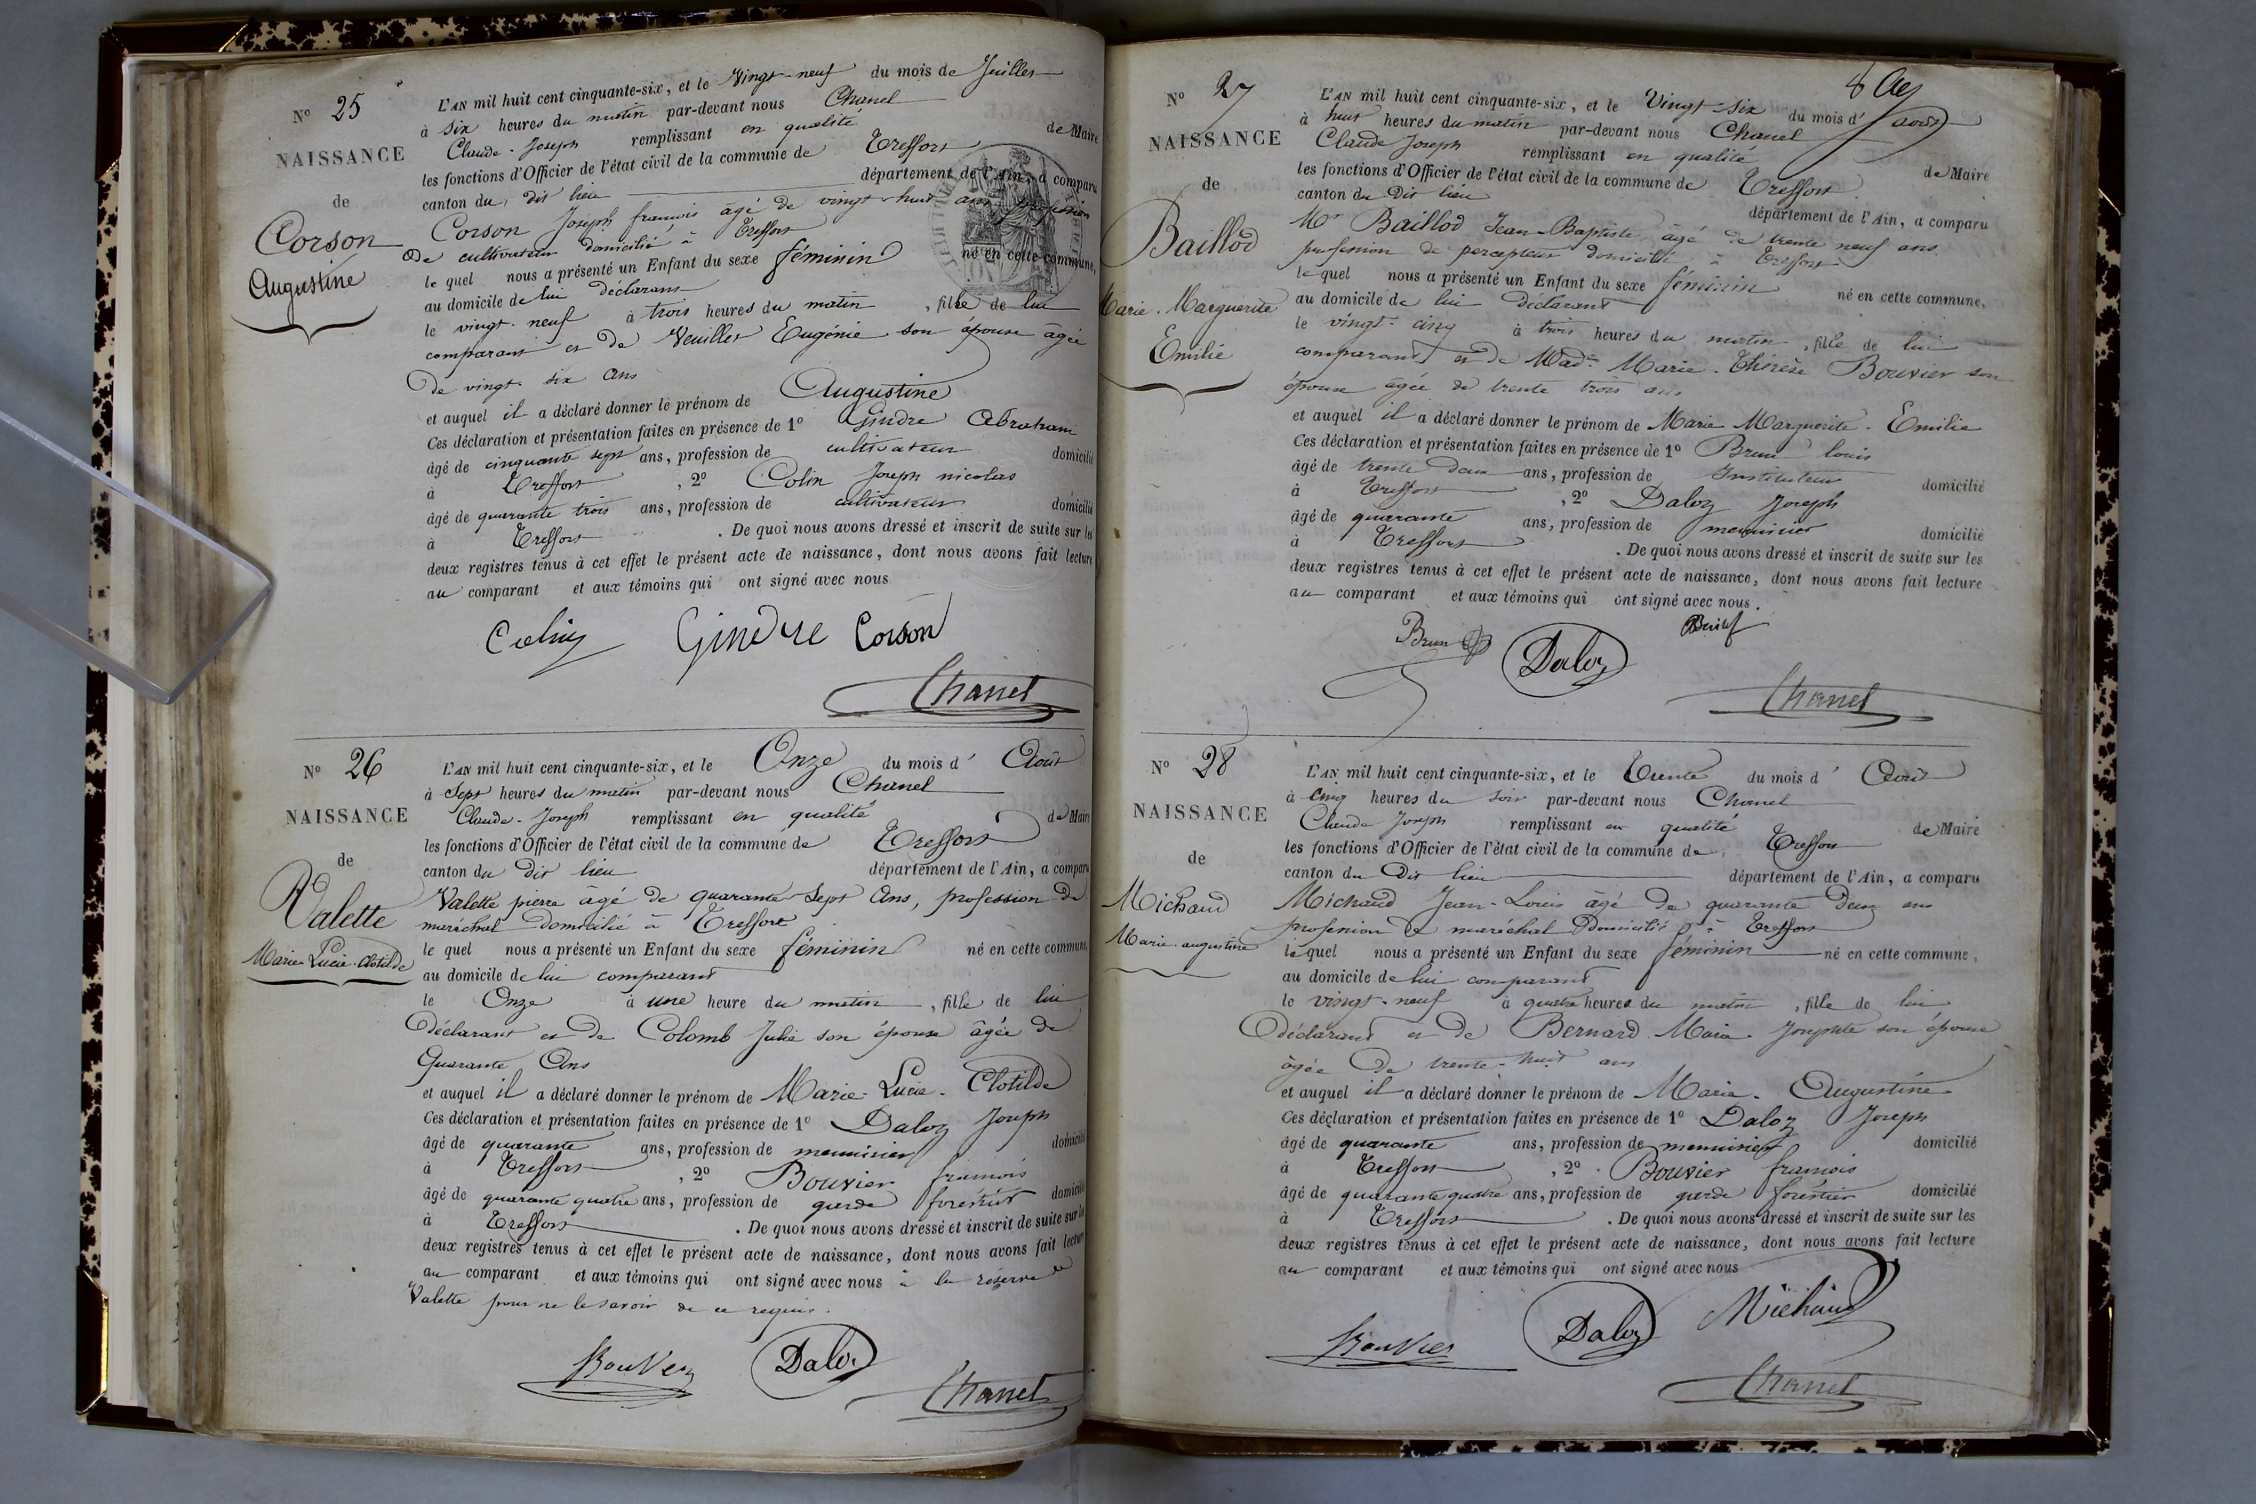 Nº 25
NAISSANCE
de
Corson
Augustine
L'AN mil huit cent cinquante-six, et le Vingt-neuf du mois de Juillet
à Six heures du matin par-devant nous Chanel
Claude-Joseph remplissant en qualité de Maire
les fonctions d'Officier de l'état civil de la commune de Treffort
canton du dit lieu département de l'Ain, a comparu
Corson Joseph françois âgé de vingt-huit ans profession
de cultivateur domicilié à Treffort
le quel nous a présenté un Enfant du sexe féminin né en cette commune,
au domicile de lui déclarant
le vingt-neuf à trois heures du matin, fille de lui
comparant et de Veuillet Eugénie son épouse âgée
de vingt six ans
et auquel il a déclaré donner le prénom de Augustine
Ces déclaration et présentation faites en présence de 1º Gindre Abraham
âgé de cinquante sept ans, profession de cultivateur domicilié
à Treffort, 2º Colin Joseph nicolas
âgé de quarante trois ans, profession de cultivateur domicilié
à Treffort. De quoi nous avons dressé et inscrit de suite sur les
deux registres tenus à cet effet le présent acte de naissance, dont nous avons fait lecture
au comparant et aux témoins qui ont signé avec nous
Colin GINDRE Corson
Chanel
Nº 26
NAISSANCE
de
Valette
Marie-Lucie-Clotilde
L'AN mil huit cent cinquante-six, et le Onze du mois d' Août
à Sept heures du matin par-devant nous Chanel
Claude-Joseph remplissant en qualité de Maire
les fonctions d'Officier de l'état civil de la commune de Treffort
canton du dit lieu département de l'Ain, a comparu
Valette pierre âgé de quarante-sept ans, profession de
maréchal domicilié à Treffort
le quel nous a présenté un Enfant du sexe féminin né en cette commune,
au domicile de lui comparant
le Onze à une heure du matin, fille de lui
déclarant et de Colomb Julie son épouse âgée de
Quarante Ans
et auquel il a déclaré donner le prénom de Marie-Lucie-Clotilde
Ces déclaration et présentation faites en présence de 1º Daloz Joseph
âgé de quarante ans, profession de menuisier domicilié
à Treffort, 2º Bouvier françois
âgé de quarante quatre ans, profession de garde forestier domicilié
à Treffort. De quoi nous avons dressé et inscrit de suite sur les
deux registres tenus à cet effet le présent acte de naissance, dont nous avons fait lecture
au comparant et aux témoins qui ont signé avec nous à la réserve de
Valette pour ne le savoir de ce requis.
Bouvier Daloz
Chanel
Nº 27
NAISSANCE
de
Baillod
Marie-Marguerite
Emilie
L'AN mil huit cent cinquante-six, et le Vingt-six du mois d' août
à huit heures du matin par-devant nous Chanel
Claude Joseph remplissant en qualité de Maire
les fonctions d'Officier de l'état civil de la commune de Treffort
canton du dit lieu département de l'Ain, a comparu
Mr Baillod Jean-Baptiste âgé de trente neuf ans
profession de percepteur domicilié à Treffort
le quel nous a présenté un Enfant du sexe féminin né en cette commune,
au domicile de lui déclarant
le vingt-cinq à trois heures du matin, fille de lui
comparant et de Made Marie-Thérèse Bouvier son
épouse âgée de trente trois ans
et auquel il a déclaré donner le prénom de Marie Marguerite-Emilie
Ces déclaration et présentation faites en présence de 1º Brun louis
âgé de trente deux ans, profession de Instituteur domicilié
à Treffort, 2º Daloz Joseph
âgé de quarante ans, profession de menuisier domicilié
à Treffort. De quoi nous avons dressé et inscrit de suite sur les
deux registres tenus à cet effet le présent acte de naissance, dont nous avons fait lecture
au comparant et aux témoins qui ont signé avec nous.
Brun Daloz
Chanel
Nº 28
NAISSANCE
de
Michaud
Marie-augustine
L'AN mil huit cent cinquante-six, et le Trente du mois d' Août
à Cinq heures du soir par-devant nous Chanel
Claude Joseph remplissant en qualité de Maire
les fonctions d'Officier de l'état civil de la commune de Treffort
canton du dit lieu département de l'Ain, a comparu
Michaud Jean-Louis âgé de quarante deux ans
profession de maréchal domicilié à Treffort
le quel nous a présenté un Enfant du sexe féminin né en cette commune,
au domicile de lui comparant
le vingt-neuf à quatre heures du matin, fille de lui
déclarant et de Bernard Marie-Josephte son épouse
âgée de trente-huit ans
et auquel il a déclaré donner le prénom de Marie-Augustine
Ces déclaration et présentation faites en présence de 1º Daloz Joseph
âgé de quarante ans, profession de menuisier domicilié
à Treffort, 2º Bouvier françois
âgé de quarante quatre ans, profession de garde forestier domicilié
à Treffort. De quoi nous avons dressé et inscrit de suite sur les
deux registres tenus à cet effet le présent acte de naissance, dont nous avons fait lecture
au comparant et aux témoins qui ont signé avec nous
Bouvier Daloz Michaud
Chanel